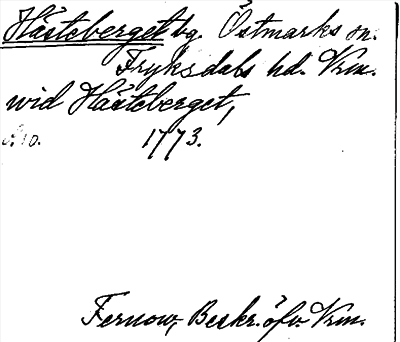 Hästeberget bg. Östmarks sn.
Fryksdals hd. Vrm.
wid Hästeberget,
s. 10. 1773.
Fernow, Beskr. öfv. Vrm.